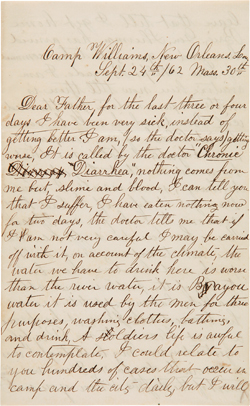 Camp Williams, New Orleans, La
Sept. 24th /62 Mass. 30th
Dear Father, for the last three or four
days I have been very sick, instead of
getting better I am, (so the doctor says) getting
worse, It is called by the doctor "Chronic
Diarrhea, nothing comes from
me but, slime and blood, I can tell you
that I suffer, I have eaten nothing now
for two days, the doctor tells me that if
I am not very careful I may be carried
off with it, on account of the climate, the
water we have to drink here is worse
than the river water, it is Bayou
water it is used by the men for three
purposes, washing clothes, bathing,
and drink, A soldiers life is awful
to contemplate, I could relate to
you hundreds of cases that occur in
camp and the city daily but I will